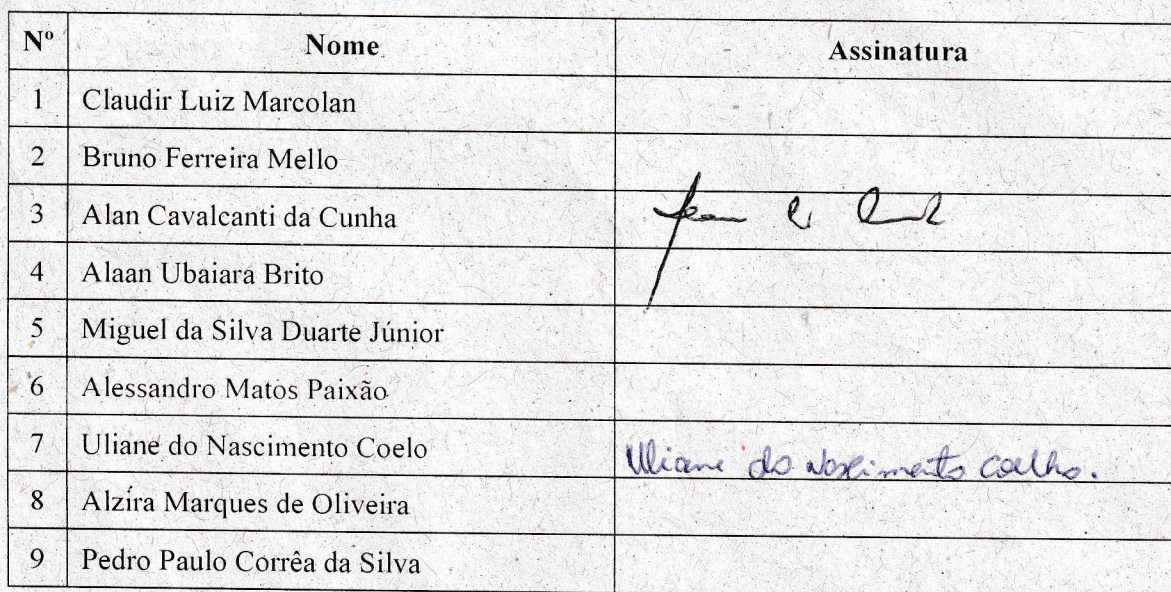 Nº Nome Assinatura
1 Claudir Luiz Marcolan
2 Bruno Ferreira Mello
3 Alan Cavalcanti da Cunha
4 Alaan Ubaiara Brito
5 Miguel da Silva Duarte Júnior
6 Alessandro Matos Paixão
7 Uliane do Nascimento Coelo Uliane do Nascimento Coelho.
8 Alzira Marques de Oliveira
9 Pedro Paulo Corrêa da Silva